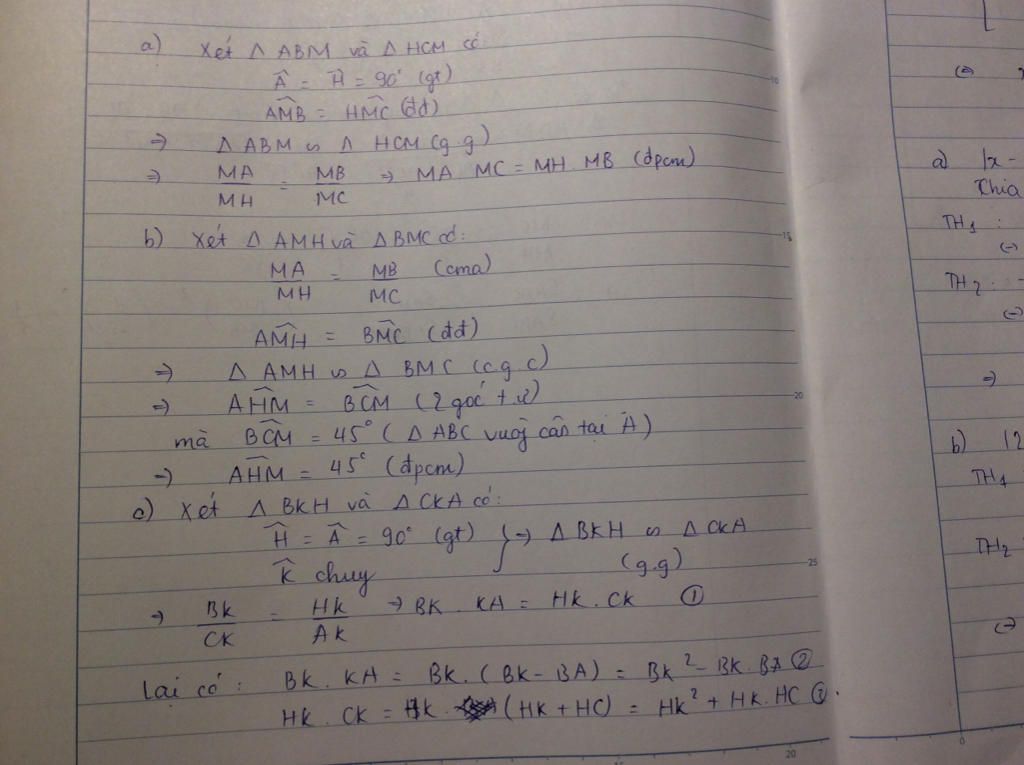 a) Xét Δ ABM và Δ HCM có:
Â = Ĥ = 90° (gt)
AM̂B = HM̂C (đđ)
⇒ Δ ABM ∽ Δ HCM (g.g)
⇒ MA/MH = MB/MC ⇒ MA MC = MH. MB (đpcm)
b) Xét Δ AMH và Δ BMC có:
MA/MH = MB/MC (cma)
AM̂H = BM̂C (đđ)
⇒ Δ AMH ∽ Δ BMC (c.g.c)
⇒ AĤM = BĈM (2 góc t.ư)
mà BĈM = 45° (Δ ABC vuông cân tại A)
⇒ AĤM = 45° (đpcm)
c) Xét Δ BKH và Δ CKA có:
Ĥ = Â = 90° (gt) } ⇒ Δ BKH ∽ Δ CKA
K̂ chung (g.g)
⇒ BK/CK = HK/AK ⇒ BK. KA = HK. CK ①
Lại có: BK. KA = BK. (BK - BA) = BK² - BK. BA ②
HK. CK = HK. (HK + HC) = HK² + HK. HC ③.
a) |x -
Chia
TH1 :
(=)
TH2 : -
(=)
⇒
b) |2
TH1
TH2
(=)